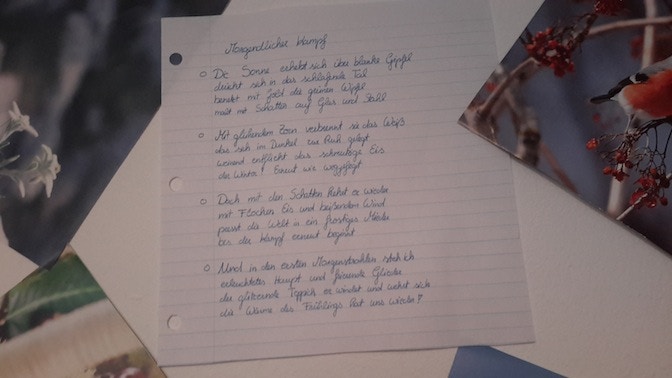 Morgendlicher Kampf
Die Sonne erhebt sich über blanke Gipfel
drückt sich in das schlafende Tal
benetzt mit Gold die grünen Wipfel
malt mit Schatten auf Glas und Stahl
Mit glühendem Zorn verbrennt sie das Weiß
das sich im Dunkel zur Ruh gelegt
weinend entflieht das schmutzige Eis
der Winter! Erneut wie weggefegt
Doch mit den Schatten kehrt er wieder
mit Flocken Eis und beißendem Wind
presst die Welt in ein frostiges Mieder
bis der Kampf erneut beginnt
Und in den ersten Morgenstrahlen steh ich
erleuchtetes Haupt und frierende Glieder
der glitzernde Teppich er windet und wehrt sich
die Wärme des Frühlings hat uns wieder!